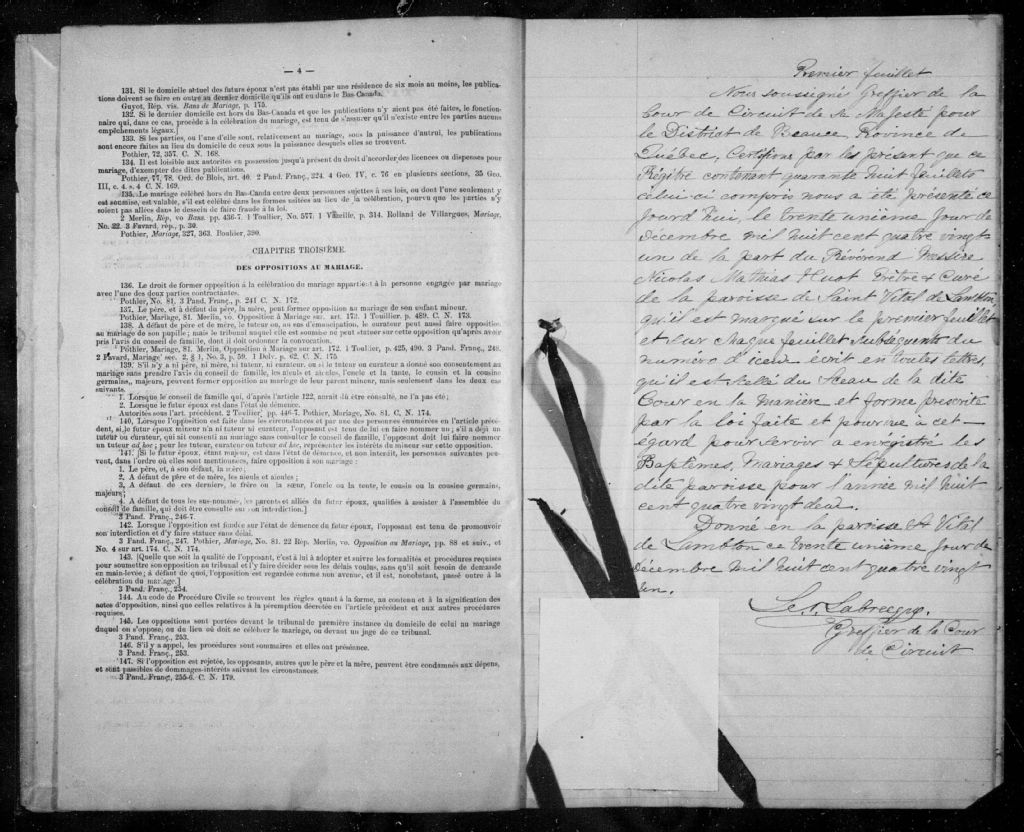 — 4 —
131. Si le domicile actuel des futurs époux n'est pas établi par une résidence de six mois au moins, les publica-
tions doivent se faire en outre au dernier domicile qu'ils ont eu dans le Bas-Canada.
Guyot, Rép. vis. Bans de Mariage, p. 175.
132. Si le dernier domicile est hors du Bas-Canada et que les publications n'y aient pas été faites, le fonction-
naire qui, dans ce cas, procède à la célébration du mariage, est tenu de s'assurer qu'il n'existe entre les parties aucuns
empêchements légaux.]
133. Si les parties, ou l'une d'elle sont, relativement au mariage, sous la puissance d'autrui, les publications
sont encore faites au lieu du domicile de ceux sous la puissance desquels elles se trouvent.
Pothier, 72, 357. C. N. 168.
134. Il est loisible aux autorités en possession jusqu'à présent du droit d'accorder des licences ou dispenses pour
mariage, d'exempter des dites publications.
Pothier, 77, 78. Ord. de Blois, art. 40. 2 Pand. Franç., 324. 4 Geo. IV, c. 76 en plusieurs sections, 35 Geo.
III, c. 4. s. 4 C. N. 169.
135. Le mariage célébré hors du Bas-Canda entre deux personnes sujettes à ses lois, ou dont l'une seulement y
est soumise, est valable, s'il est célébré dans les formes usitées au lieu de la célébration, pourvu que les parties n'y
soient pas allées dans le dessein de faire fraude à la loi.
2 Merlin, Rép, vo Bans. pp. 436-7. 1 Toullier, No. 577. 1 Vazeille, p. 314. Rolland de Villargues, Mariage,
No. 32. 3 Favard, rép., p. 30.
Pothier, Mariage, 327, 363. Bouhier, 390.
CHAPITRE TROISIÈME.
DES OPPOSITIONS AU MARIAGE.
136. Le droit de former opposition à la célébration du mariage appartient à la personne engagée par mariage
avec l'une des deux parties contractantes.
Pothier, No. 81. 3 Pand. Franç., p. 241 C. N. 172.
137. Le père, et à défaut du père, la mère, peut former opposition au mariage de son enfant mineur.
Pothier, Mariage, 81. Merlin, vo. Opposition à Mariage sur. art. 172. 1 Touillier. p. 489. C. N. 173.
138. A défaut de père et de mère, le tuteur ou, au cas d'émancipation, le curateur peut aussi faire opposition
au mariage de son pupille; mais le tribunal auquel elle est soumise ne peut statuer sur cette opposition qu'après avoir
pris l'avis du conseil de famille, dont il doit ordonner la convocation.
Pothier, Mariage, 81. Merlin, Opposition à Mariage sur art. 172. 1 Toullier, p. 425, 490. 3 Pand. Franç., 248.
2 Favard, Mariage sec. 2, § 1, No. 3, p. 59. 1 Delv. p. 62. C. N. 175
139. S'il n'y a ni père, ni mère, ni tuteur, ni curateur, ou si le tuteur ou curateur a donné son consentement au
mariage sans prendre l'avis du conseil de famille, les aïeuls et aïeules, l'oncle et la tante, le cousin et la cousine
germains, majeurs, peuvent former opposition au mariage de leur parent mineur, mais seulement dans les deux cas
suivants.
1. Lorsque le conseil de famille qui, d'après l'article 122, aurait dû être consulté, ne l'a pas été;
2. Lorsque le futur époux est dans l'état de démence.
Autorités sous l'art. précédent. 2 Touillier, pp. 446-7. Pothier, Mariage, No. 81. C, N. 174.
140. Lorsque l'opposition est faite dans les circonstances et par une des personnes énumérées en l'article précé-
dent, si le futur époux mineur n'a ni tuteur ni curateur, l'opposant est tenu de lui en faire nommer un; s'il a déjà un
tuteur ou curateur, qui ait consenti au mariage sans consulter le conseil de famille, l'opposant doit lui faire nommer
un tuteur ad hoc; pour les tuteur, curateur ou tuteur ad hoc, représenter les intérêts du mineur sur cette opposition.
141. [Si le futur époux, étant majeur, est dans l'état de démence, et non interdit, les personnes suivantes peu-
vent, dans l'ordre où elles sont mentionnées, faire opposition à son mariage:
1. Le père, et, à son défaut, la mère;
2. A défaut de père et de mère, les aïeuls et aïeules;
3, A défaut de ces derniers, le frère ou la sœur, l'oncle ou la tante, le cousin ou la cousine germains,
majeurs;
4. A défaut de tous les sus-nommés, les parents et alliés du futur époux, qualifiés à assister à l'assemblée du
conseil de famille, qui doit être consulté sur son interdiction.]
3 Pand. Franç., 246-7.
142. Lorsque l'opposition est fondée sur l'état de démence du futur époux, l'opposant est tenu de promouvoir
son interdiction et d'y faire statuer sans délai.
3 Pand. Franç., 247. Pothier, Mariage, No. 81. 22 Rép. Merlin, vo. Opposition au Mariage, pp. 88 et suiv., et
No. 4 sur art. 174. C. N. 174.
143. [Quelle que soit la qualité de l'opposant, c'est à lui à adopter et suivre les formalités et procédures requises
pour soumettre son opposition au tribunal et l'y faire décider sous les délais voulus, sans qu'il soit besoin de demande
en main-levée; à défaut de quoi, l'opposition est regardée comme non avenue, et il est, nonobstant, passé outre à la
célébration du mariage.]
3 Pand. Franç., 254.
144. Au code de Procédure Civile se trouvent les règles quant à la forme, au contenu et à la signification des
actes d'opposition, ainsi que celles relatives à la péremption décrétée en l'article précédent et aux autres procédures
requises.
145. Les oppositions sont portées devant le tribunal de première instance du domicile de celui au mariage
duquel on s'oppose, ou du lieu où doit se célébrer le mariage, ou devant un juge de ce tribunal.
3 Pand. Franç., 253.
146. S'il y a appel, les procédures sont sommaires et elles ont préséance.
3 Pand. Franç., 253.
147. Si l'opposition est rejetée, les opposants, autres que le père et la mère, peuvent être condamnés aux dépens,
et sont passibles de dommages-intérêts suivant les circonstances.
3 Pand. Franç, 255-6. C. N. 179.
Premier feuillet
Nous soussigné Greffier de la
Cour de Circuit de Sa Majesté pour
le District de Beauce, Province de
Québec, Certifions par les présent que ce
Régître contenant quarante huit feuillets
celui ci compris nous a été présenté ce
jourd'hui, le trente unième jour de
Décembre mil huit cent quatre vingt
un de la part du Révérend Messire
Nicolas Mathias Huot Prêtre & Curé
de la paroisse de Saint Vital de Lambton
qu'il est marqué sur le premier feuillet
et sur chaque feuillet subséquents du
numéro d'iceux écrit en toutes lettres,
qu'il est scellé du Sceau de la dite
Cour en la manière et forme prescrite
par la loi faite et pourvue à cet
égard pour servir à enregistré les
Baptêmes, Mariages & Sépultures de la
dite paroisse pour l'année mil huit
cent quatre vingt deux.
Donné en la paroisse St Vital
de Lambton ce trente unième jour de
Décembre mil huit cent quatre vingt
un.
Labrecque.
Greffier de la Cour
de Circuit